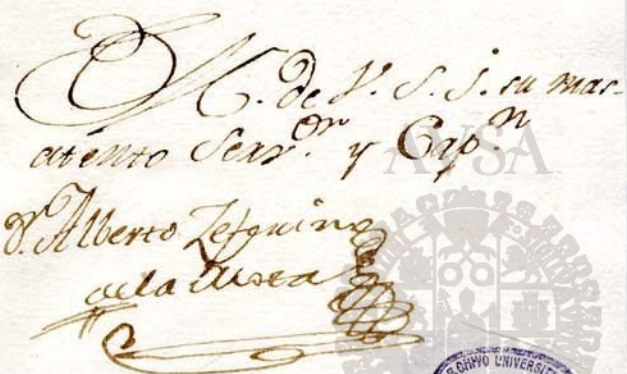 B. L. M. de V. S. J. su mas
atento Serv.or y Cap.n
D. Alberto Zesquino
de la
AVSA
ARCHIVO UNIVERSI